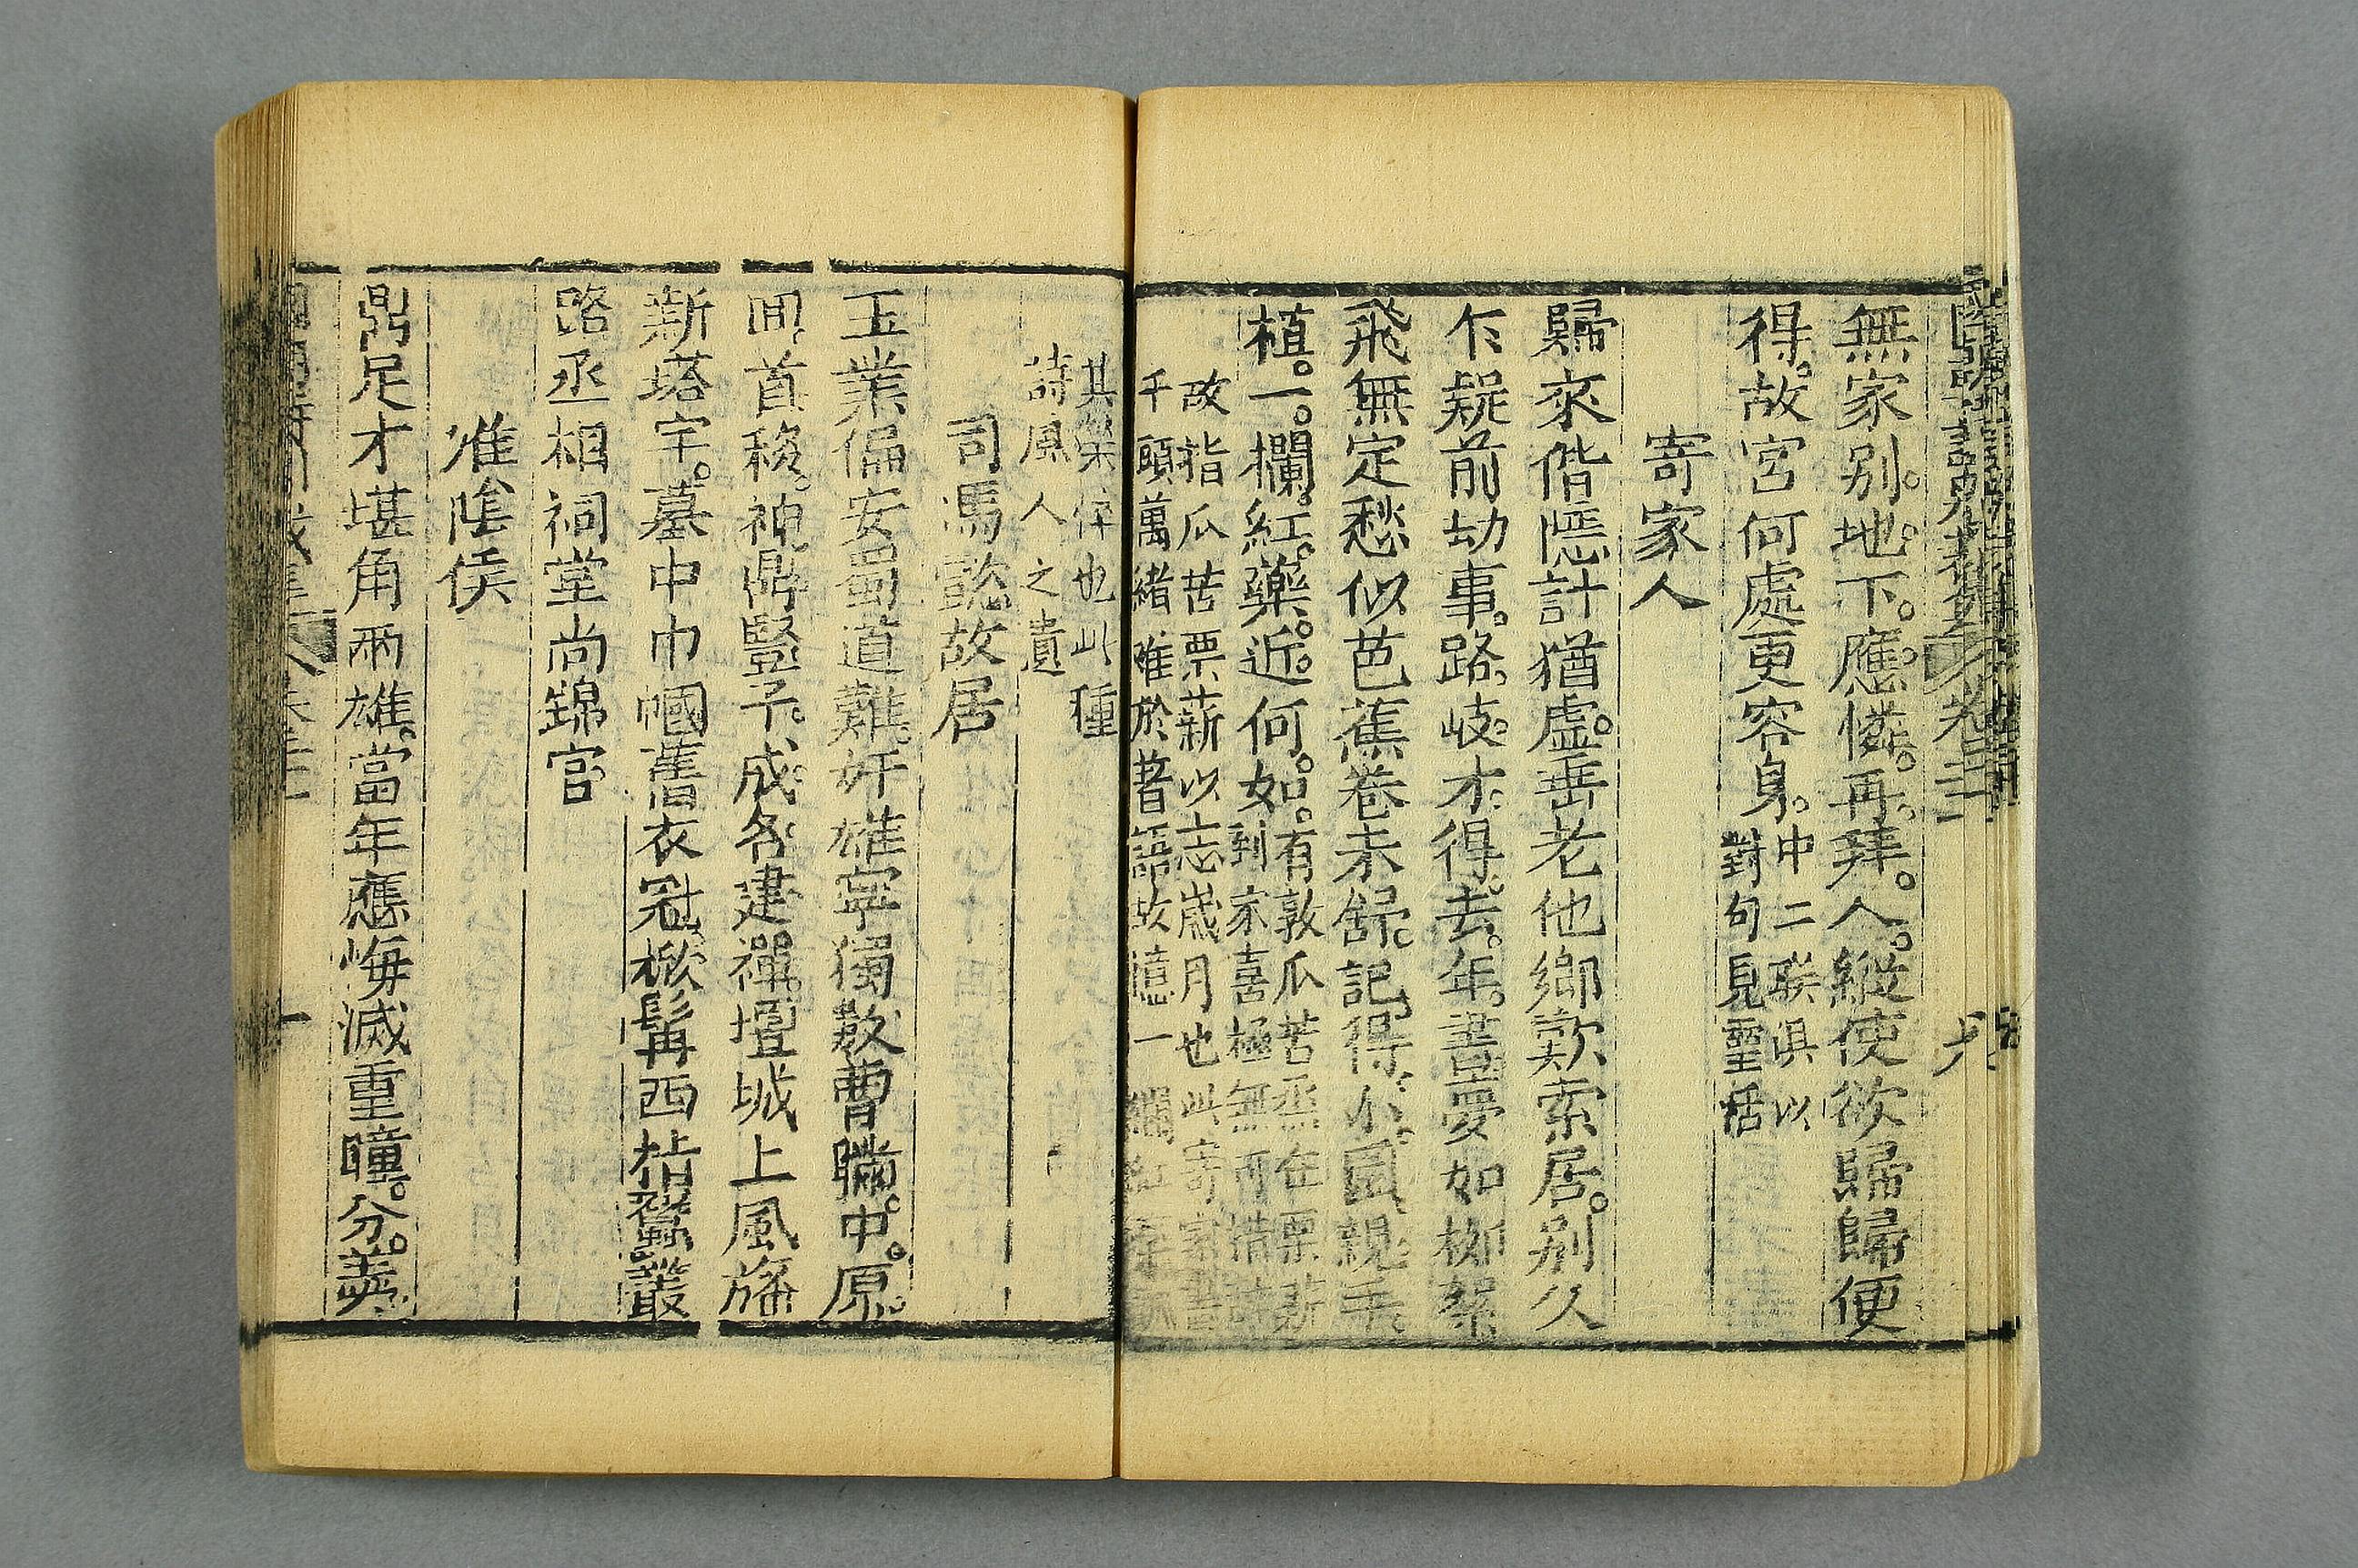 無家别地下應憐再拜人縱使欲歸歸便
得故宮何處更容身中二联俱以
對句見靈活
寄家人
歸來偕隱計猶虛岳老他鄉歎索居别久
乍疑前劫事路岐才得去年書夢如柳絮
飛無定愁似芭蕉卷未舒記得小園親手
植一欄紅藥近何如有敦瓜苦烝在栗薪
到家喜極無可措
故指瓜苦栗薪以忘歲月也此寄家書
千頭萬緒難於著語故憶一欄紅藥
其樂倅也此種
詩風人之遺
司馬懿故居
王業偏安蜀道難奸雄寧獨數曹瞞中原
回首移神鼎豎子成名建禪壇城上風旛
新塔宇墓中巾幗舊衣冠揪髯西指蠶叢
路丞相祠堂尚錦官
淮陰侯
鼎足才堪角兩雄當年應悔滅重瞳分羹